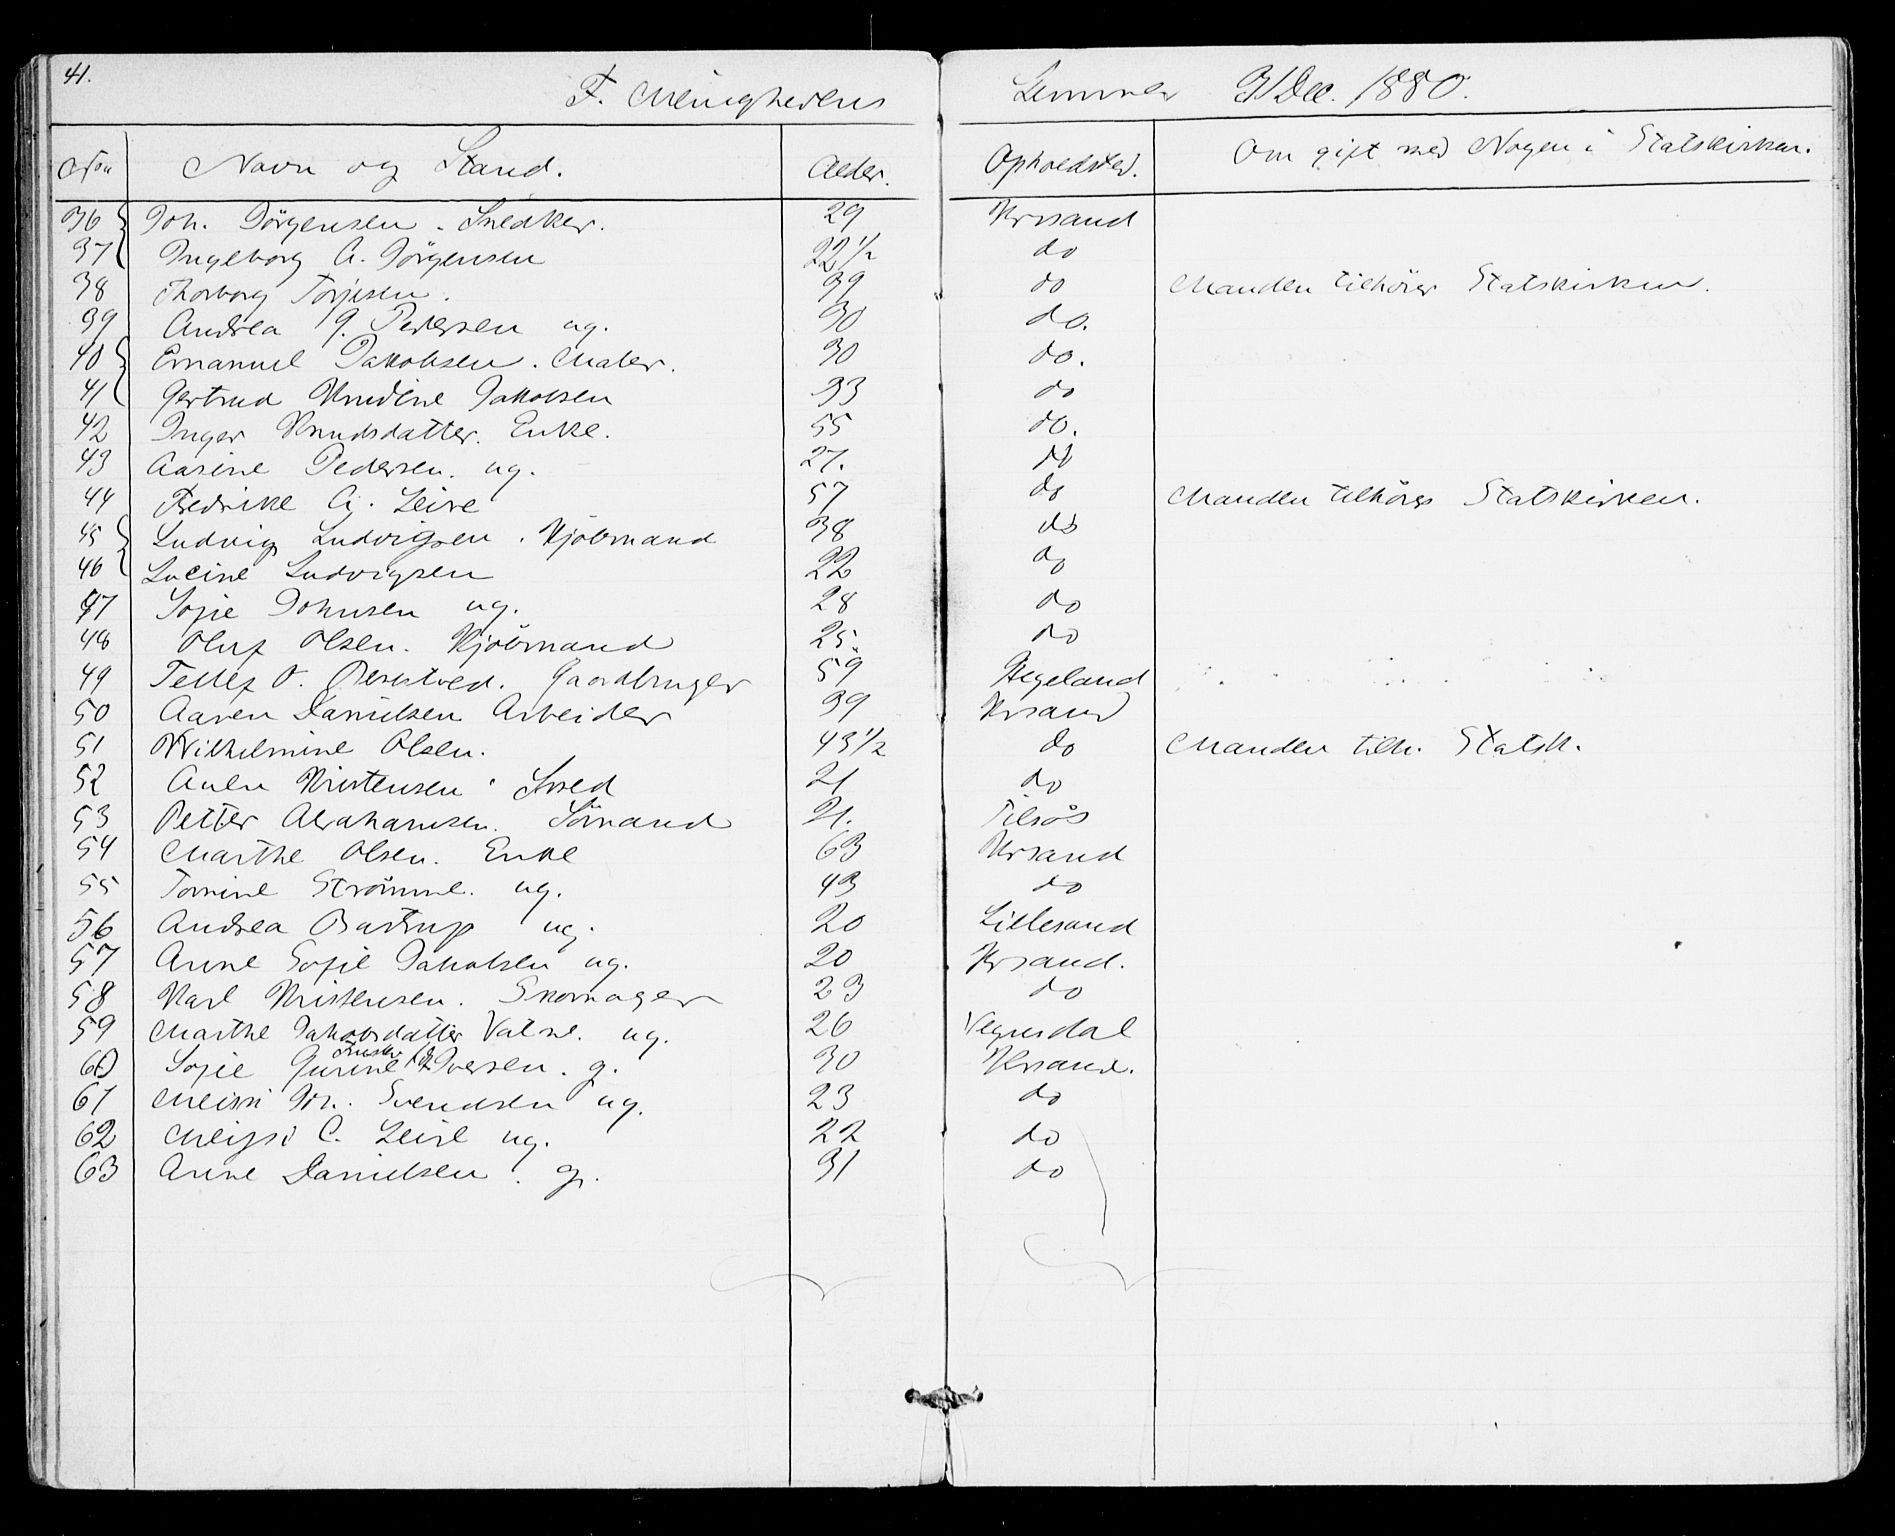 41.
F. Menighedens Lemmer 31 Dec. 1880.
Navn og Stand. Alder. Opholdsted. Om gift med Nogen i Statskirken.
36 Joh. Jörgensen. Snedker. 29 Krssand
37 Ingeborg A. Jörgensen 22 1/2 do
38 Thorborg Torjesen. 39 do Manden tilhörer Statskirken.
39 Andrea J. Pedersen ug. 30 do.
40 Emanuel Jakobsen. Maler. 30 do.
41 Gertrud Knudine Jakobsen 33 do
42 Inger Knudsdatter. Enke. 55 do.
43 Aasine Pedersen. ug. 27. do
44 Fredrike A. Leire 57 do Manden tilhörer Statskirken.
45 Ludvig Ludvigsen. Kjöbmand 38 do
46 Lucine Ludvigsen 22 do
47 Sofie Johnsen ug. 28 do
48 Oluf Olsen. Kjöbmand 25. do
49 Tellef O. Gaardbruger 59 Hegeland
50 Aaren Danielsen Arbeider 39 Krsand
51 Wilhelmine Olsen. 43 1/2 do Manden tilh. Statsk.
52 Kristensen. Smed 21 do
53 Petter Abrahamsen. Sömand 21. Tilsös
54 Marthe Olsen. Enke 63 Krsand
55 Tomine Strömme. ug. 43 do
56 Andrea Bastrup ug. 20 Lillesand
57 Anne Sofie Jakobsen ug. 20 Krsand.
58 Karl Kristensen. Skomager 23 do
59 Marthe Jakobsdatter Vatne. ug. 26 Vegusdal
60 Sofie Gurine Iversen. g. 30 Krsand.
61 Meissi Joh. Svendsen ug. 23 do
62 C. Leire ug. 22 do
63 Anne Danielsen. g. 31 do